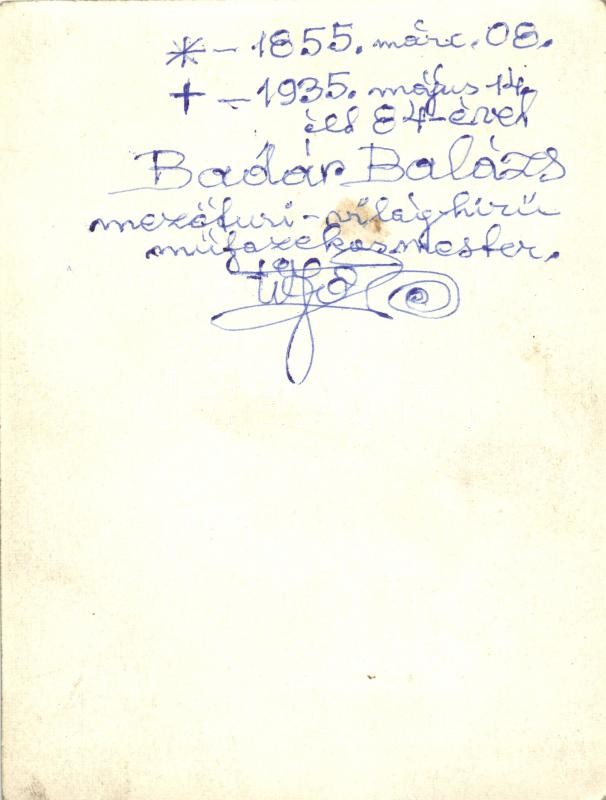 * – 1855. márc. 08.
+ – 1935. május 14.
élt 84-évet
Badár Balázs
mezőturi-világhírű
műfazekasmester.
ifj